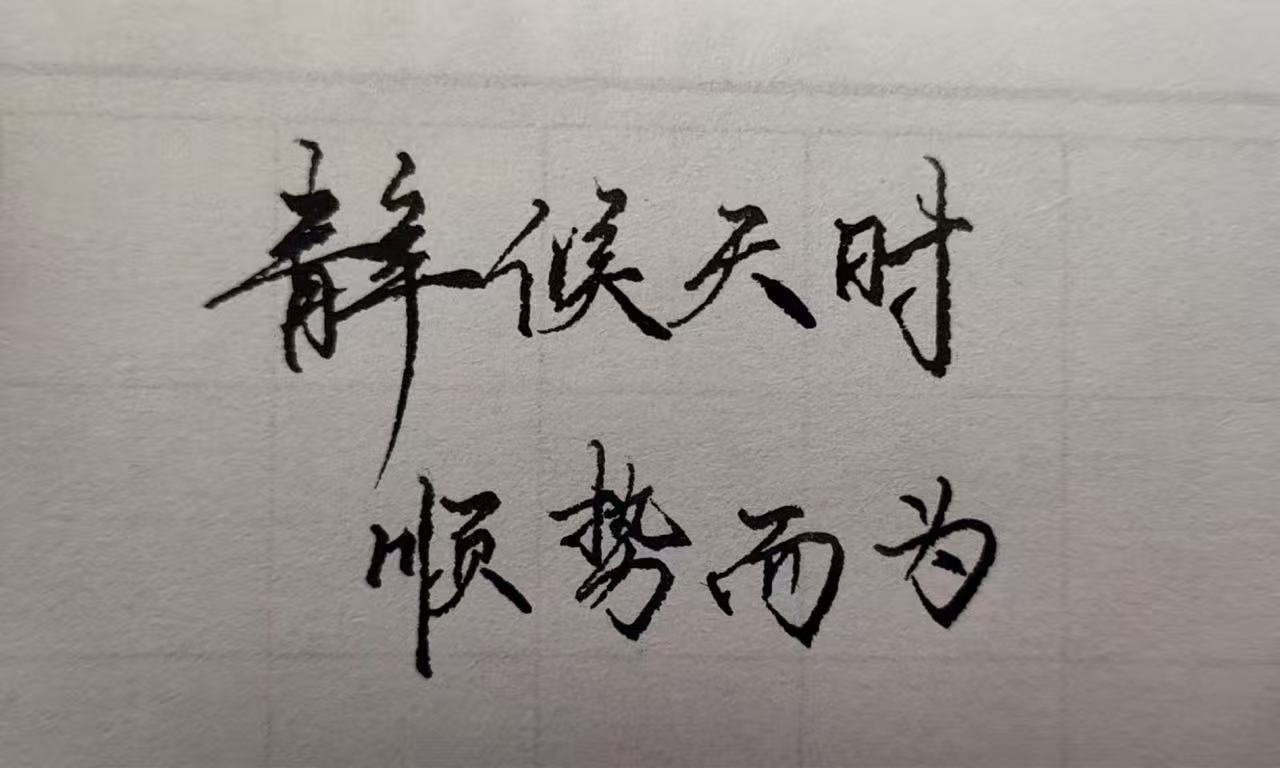 静候天时
顺势而为